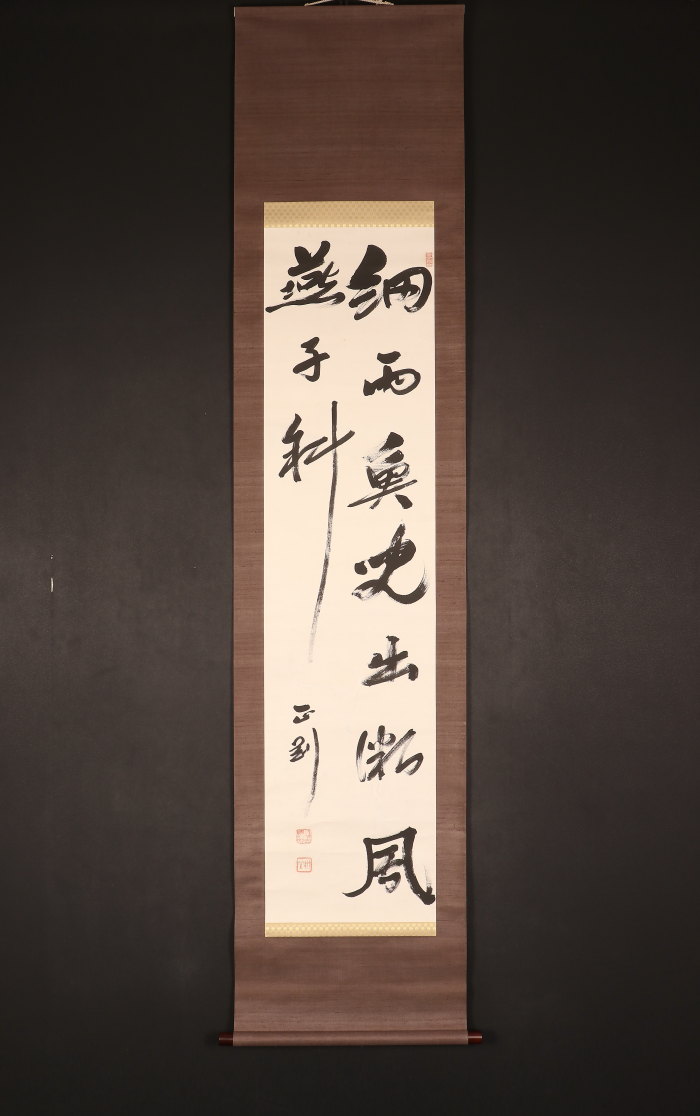 細雨魚児出微風
燕子斜
正剛